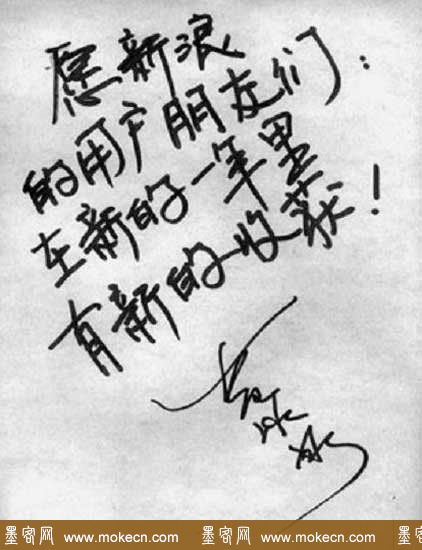 愿新浪
的用户朋友们：
在新的一年里
有新的收获！
墨客网 www.mokecn.com 墨客网 www.mokecn.com